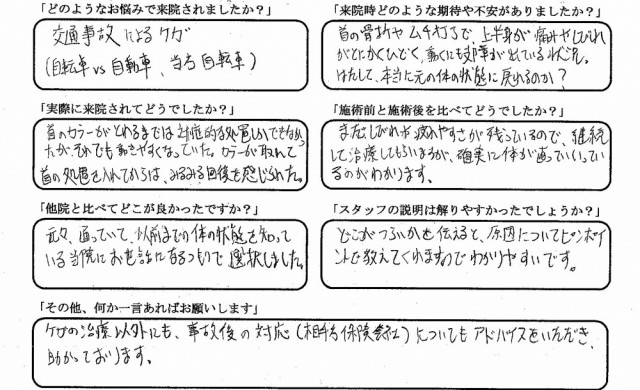 「どのようなお悩みで来院されましたか？」
交通事故によるケガ
(自転車 vs 自動車、当方自転車)
「来院時どのような期待や不安がありましたか？」
首の骨折やムチ打ちで、上半身が痛みやしびれ
がとにかくひどく、動くにも支障が出ている状況。
はたして、本当に元の体の状態に戻れるのか？
「実際に来院されてどうでしたか？」
首のカラーがとれるまでは対症的な処置しかできなかっ
たが、それでも動きやすくなっていた。カラーが取れて
首の処置を入れてからは、みるみる回復を感じられた。
「施術前と施術後を比べてどうでしたか？」
まだしびれが 疲れやすさが残っているので、継続
して治療してもらいますが、確実に体が直っていくっている
のがわかります。
「他院と比べてどこが良かったですか？」
元々、通っていて、以前までの体の状態を知って
いる当院にお世話になるつもりで選択しました。
「スタッフの説明は解りやすかったでしょうか？」
どこがつらいかを伝えると、原因についてピンポイ
ントで教えてくれますのでわかりやすいです。
「その他、何か一言あればお願いします」
ケガの治療以外にも、事故後の対応(相手方保険会社)についてもアドバイスをいただき、
助かっております。